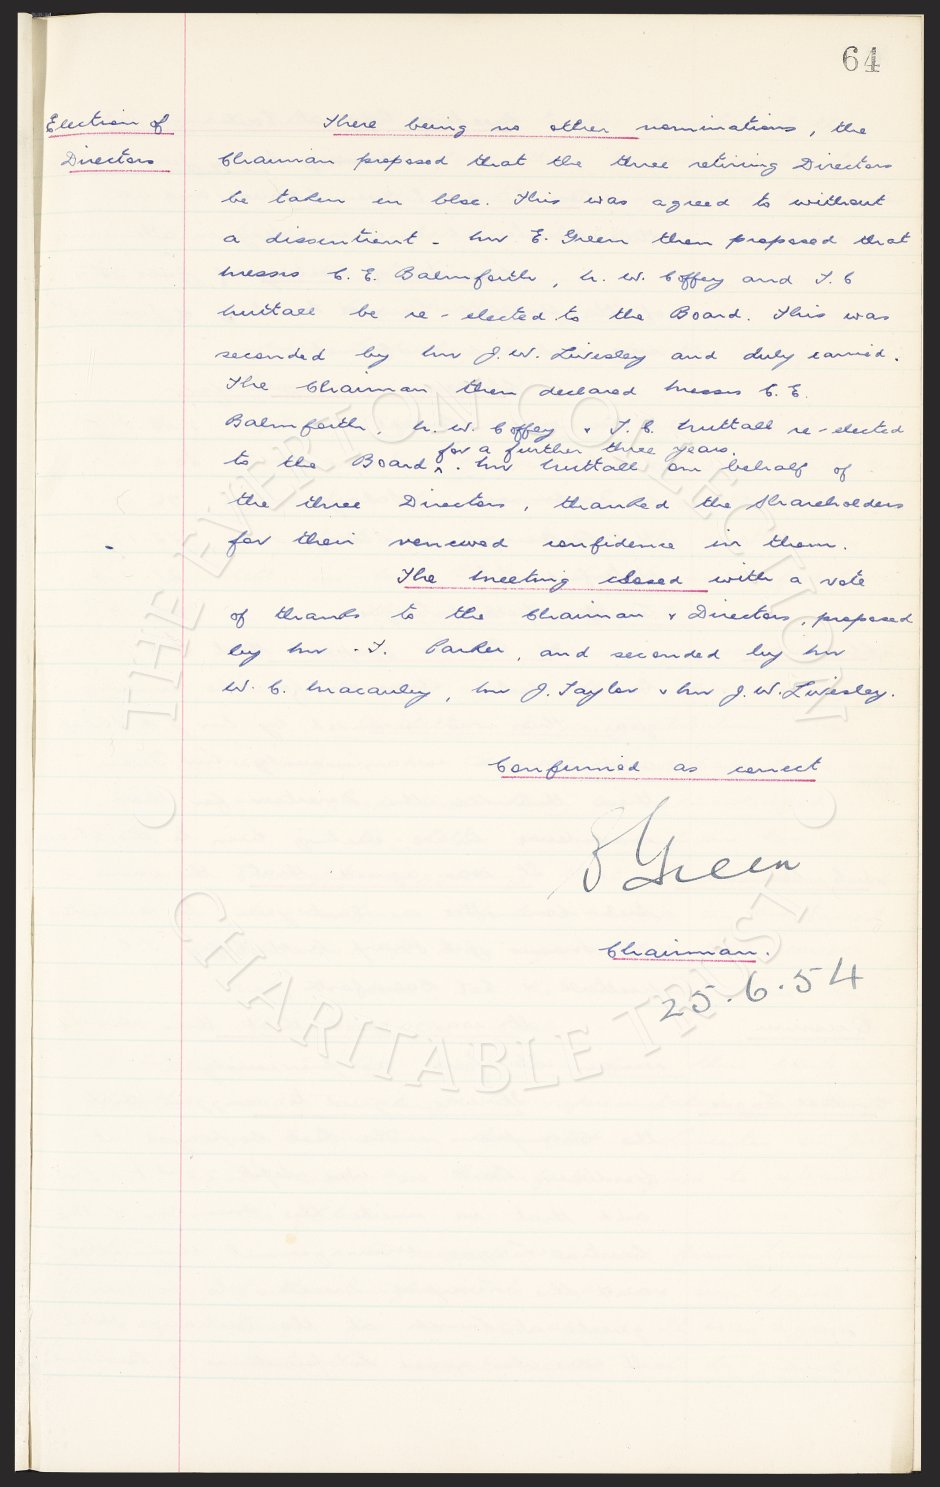 64
Election of
Directors
There being no other nominations, the
Chairman proposed that the three retiring Directors
be taken en bloc. This was agreed to without
a dissentient - Mr E. Green then proposed that
Messrs C. E. Balmforth, N. W. Coffey and T. C
Nuttall be re-elected to the Board. This was
seconded by Mr J. W. Livesley and duly carried.
The Chairman then declared Messrs C. E.
Balmforth, N. W. Coffey & T. C. Nuttall re-elected
for a further three years.
to the Board ^. Mr Nuttall on behalf of
the three Directors, thanked the Shareholders
for their renewed confidence in them.
The Meeting closed with a vote
of thanks to the Chairman & Directors, proposed
by Mr. T. Parker, and seconded by Mr
W. C. Macauley, Mr J. Taylor & Mr J. W. Livesley.
Confirmed as correct
E Green
Chairman.
25.6.54
THE EVERTON COLLECTION
CHARITABLE TRUST